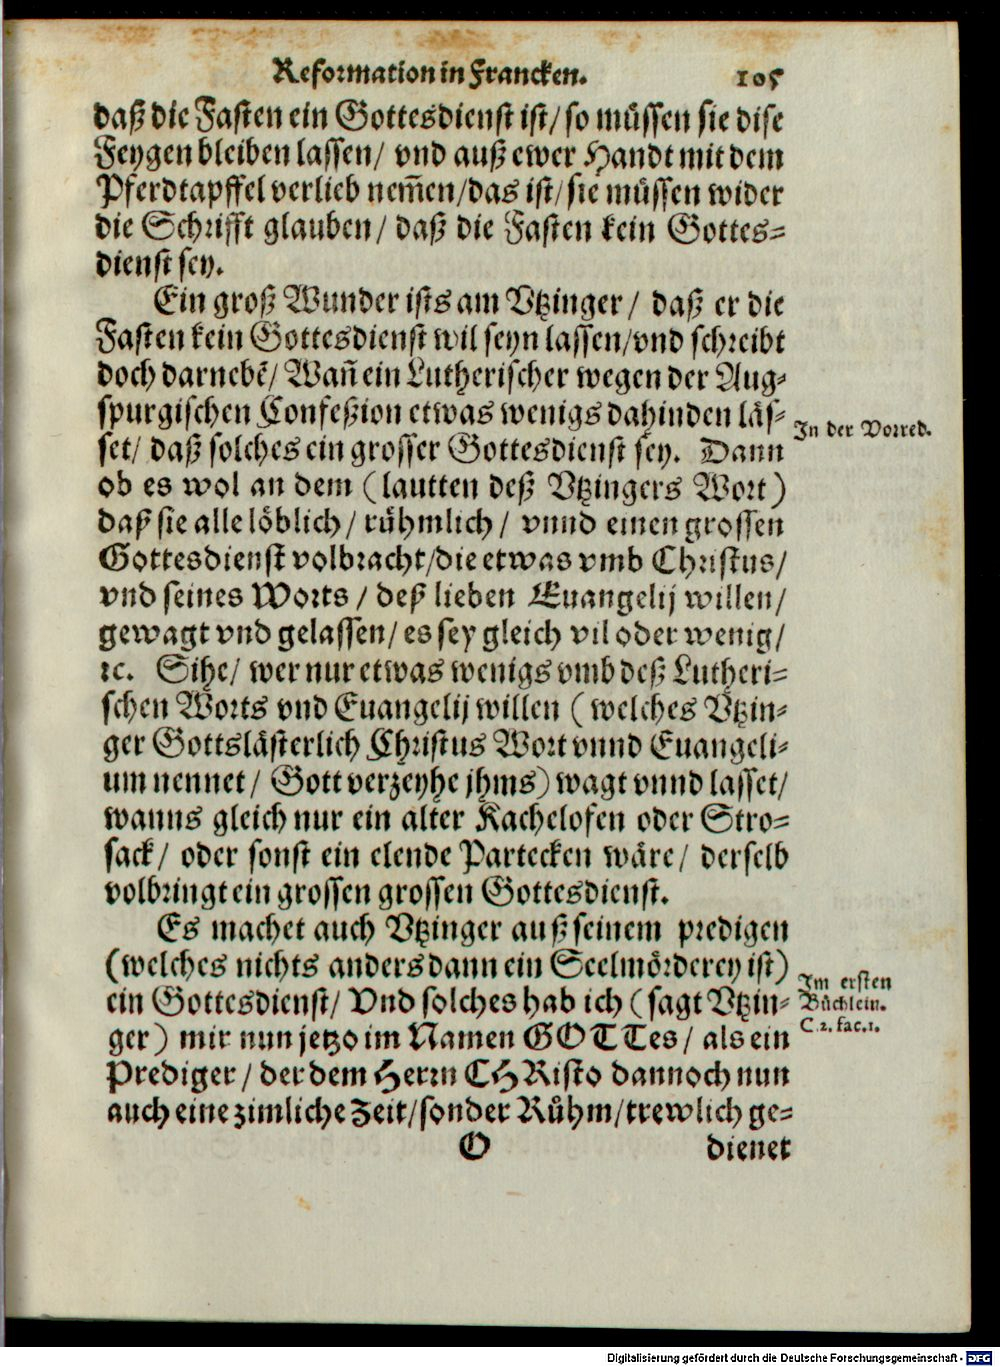 Reformation in Francken. 105
daß die Fasten ein Gottesdienst ist/ so müssen sie dise
Feygen bleiben lassen/ vnd auß ewer Handt mit dem
Pferdtapffel verlieb nem̃en/das ist/sie müssen wider
die Schrifft glauben/ daß die Fasten kein Gottes-
dienst sey.
Ein groß Wunder ists am Vtzinger/ daß er die
Fasten kein Gottesdienst wil seyn lassen/vnd schreibt
doch darnebẽ/ Wañ ein Lutherischer wegen der Aug-
spurgischen Confeßion etwas wenigs dahinden läs-
set/ daß solches ein grosser Gottesdienst sey. Dann
In der Vorred.
ob es wol an dem (lautten deß Vtzingers Wort)
daß sie alle löblich/ rühmlich/ vnnd einen grossen
Gottesdienst volbracht/die etwas vmb Christus/
vnd seines Worts/ deß lieben Euangelij willen/
gewagt vnd gelassen/ es sey gleich vil oder wenig/
ꝛc. Sihe/ wer nur etwas wenigs vmb deß Lutheri-
schen Worts vnd Euangelij willen (welches Vtzin-
ger Gottslästerlich Christus Wort vnnd Euangeli-
um nennet/ Gott verzeyhe jhms) wagt vnnd lasset/
wanns gleich nur ein alter Kachelofen oder Stro-
sack/ oder sonst ein elende Partecken wäre/ derselb
volbringt ein grossen grossen Gottesdienst.
Es machet auch Vtzinger auß seinem predigen
(welches nichts anders dann ein Seelmörderey ist)
ein Gottesdienst/ Vnd solches hab ich (sagt Vtzin-
ger) mir nun jetzo im Namen GOTTes/ als ein
Prediger/ der dem Herrn CHRisto dannoch nun
auch eine zimliche Zeit/sonder Rühm/trewlich ge-
Im ersten
Büchlein.
C.2.fac.1.
O dienet
Digitalisierung gefördert durch die Deutsche Forschungsgemeinschaft - DFG